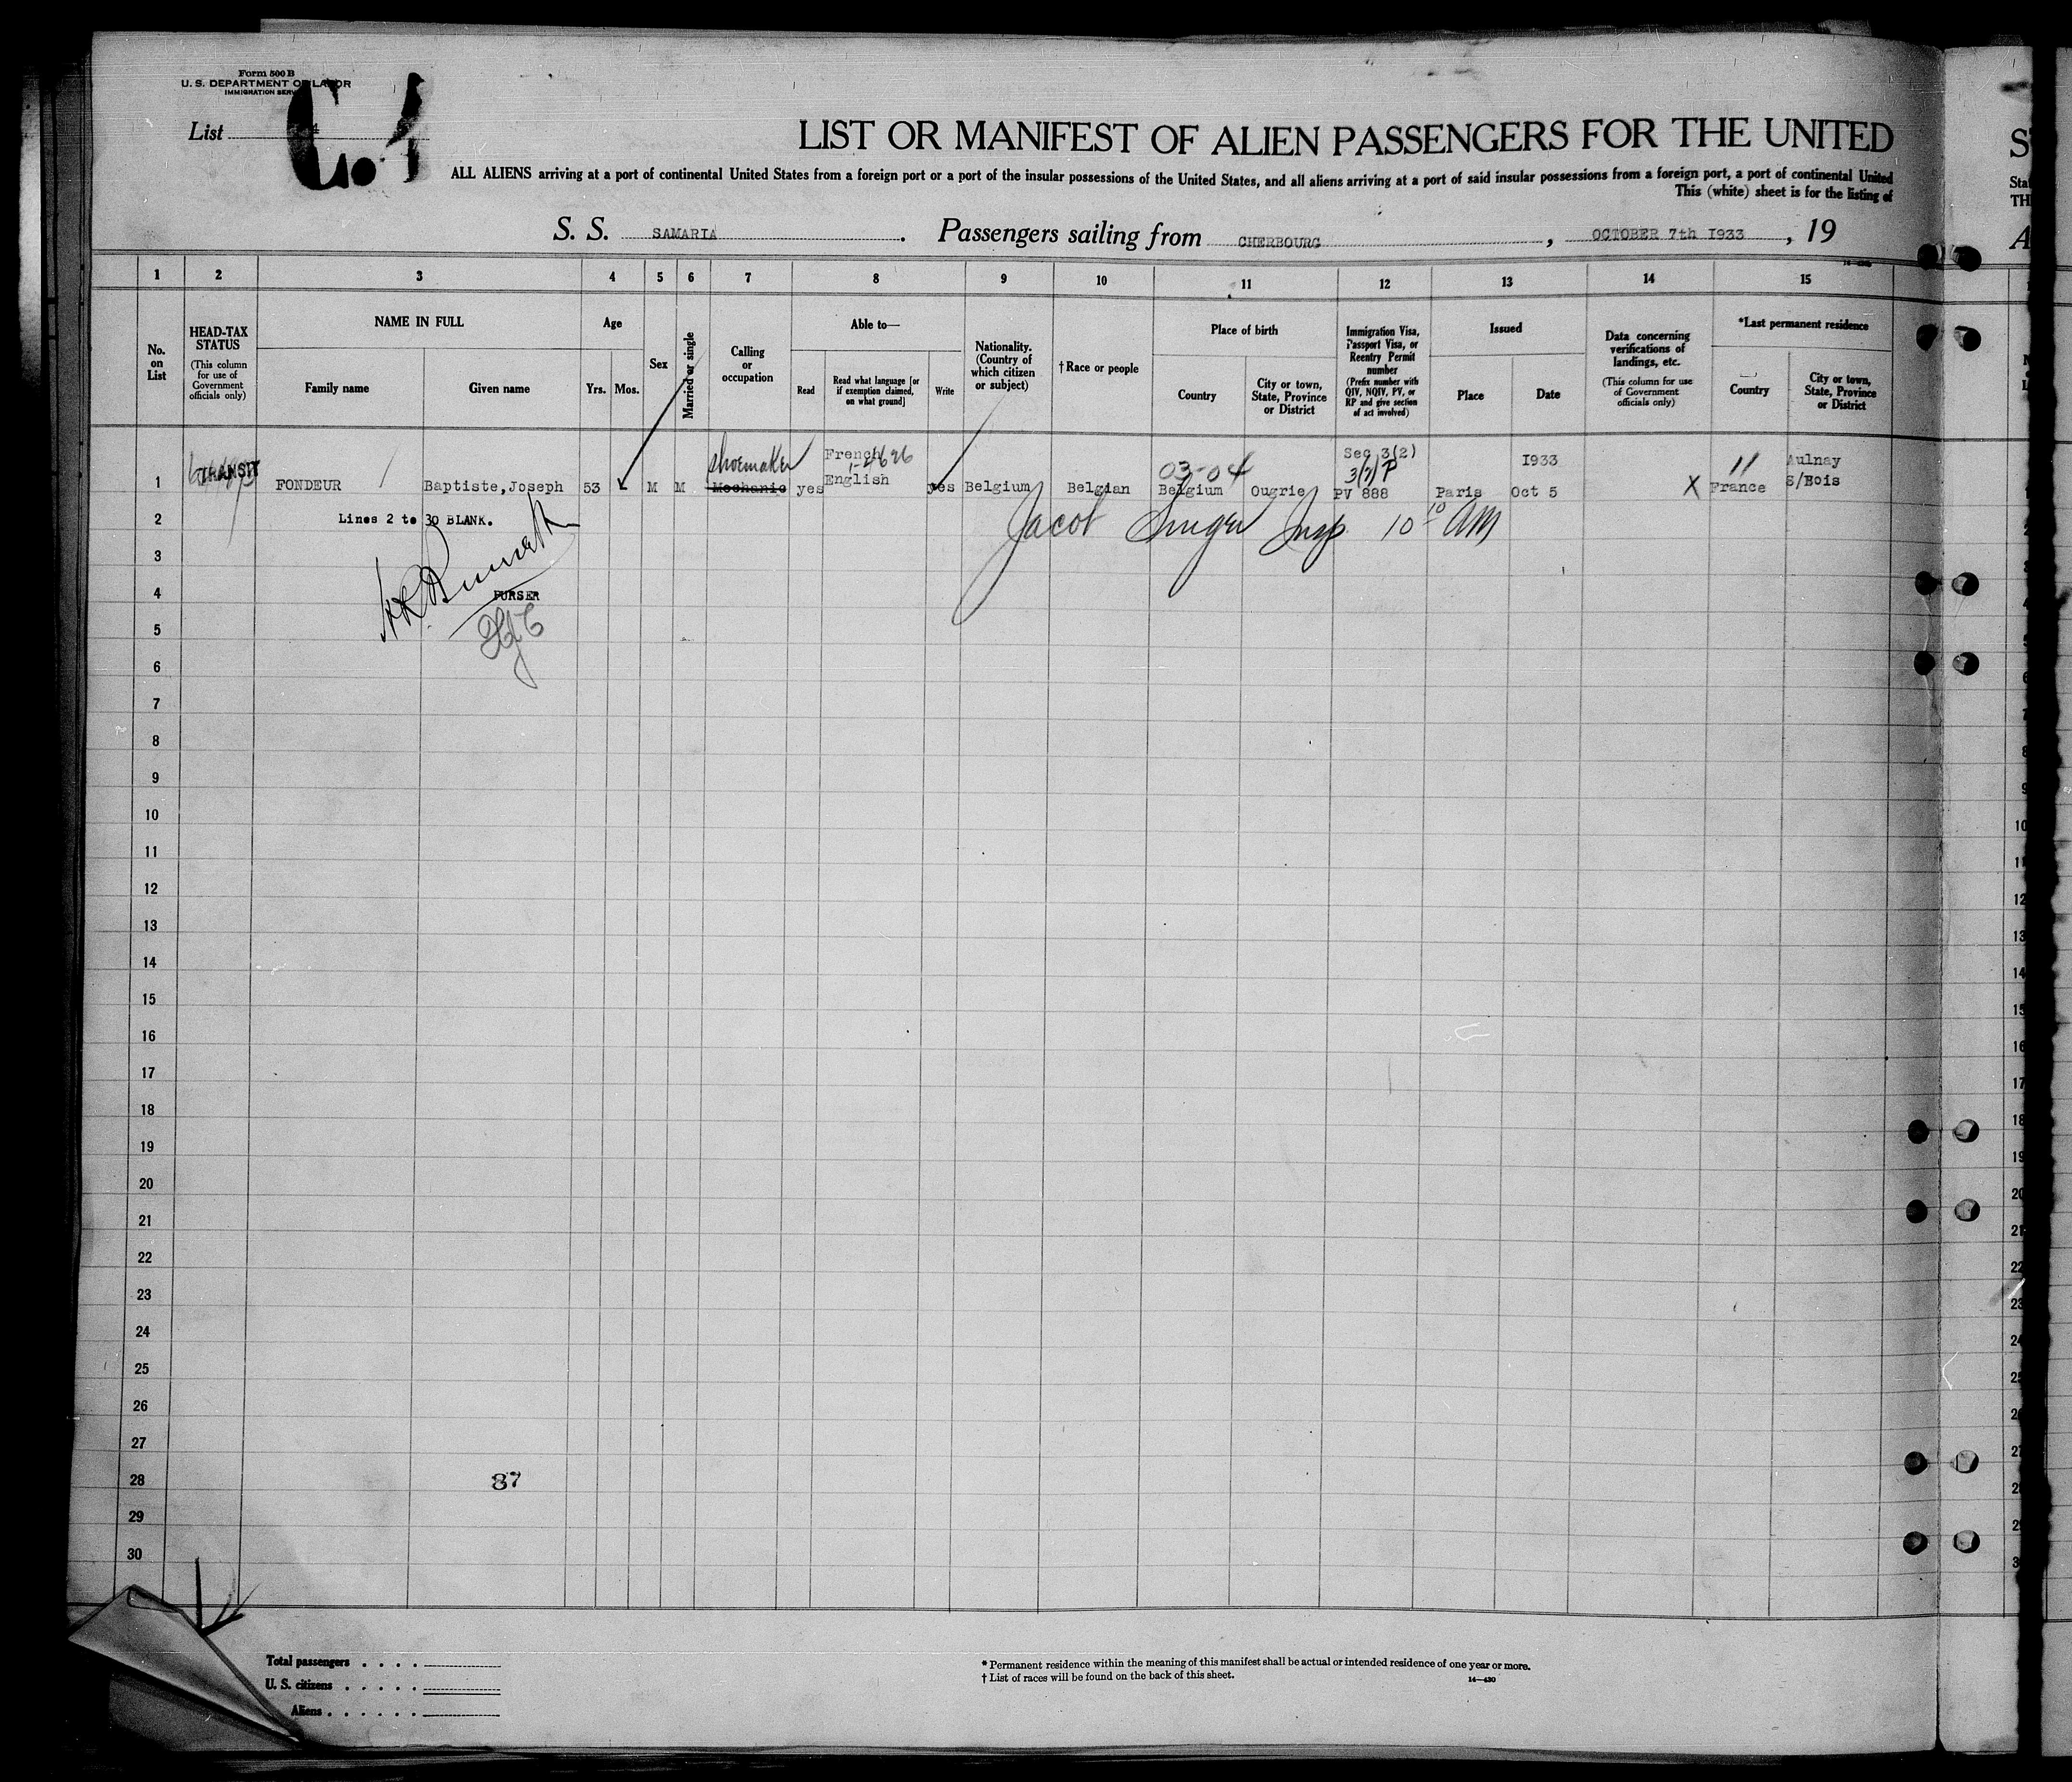 Form 500 B
U. S. DEPARTMENT OF LABOR
IMMIGRATION SERV
List 4
LIST OR MANIFEST OF ALIEN PASSENGERS FOR THE UNITED
ALL ALIENS arriving at a port of continental United States from a foreign port or a port of the insular possessions of the United States, and all aliens arriving at a port of said insular possessions from a foreign port, a port of continental United
This (white) sheet is for the listing of
S. S. SAMARIA . Passengers sailing from CHERBOURG , OCTOBER 7th 1933 , 19
1 2 3 4 5 6 7 8 9 10 11 12 13 14 15
No. on List
HEAD-TAX STATUS
(This column for use of Government officials only)
NAME IN FULL
Family name Given name
Age
Yrs. Mos.
Sex
Married or single
Calling or occupation
Able to—
Read
Read what language [or if exemption claimed, on what ground]
Write
Nationality. (Country of which citizen or subject)
†Race or people
Place of birth
Country
City or town, State, Province or District
Immigration Visa, Passport Visa, or Reentry Permit number
(Prefix number with QIV, NQIV, PV, or RP and give section of act involved)
Issued
Place Date
Data concerning verifications of landings, etc.
(This column for use of Government officials only)
*Last permanent residence
Country
City or town, State, Province or District
TRANSIT shoemaker French 1-4696 03-04 Sec 3(2) 3(2) P 1933 11 Aulnay
1 FONDEUR Baptiste,Joseph 53 M M Mechanic yes English yes Belgium Belgian Belgium Ougrie PV 888 Paris Oct 5 X France S/Bois
2 Lines 2 to 30 BLANK. Jacob Singer Insp. 10 10 AM
3
4 PURSER
5
6
7
8
9
10
11
12
13
14
15
16
17
18
19
20
21
22
23
24
25
26
27
28 87
29
30
Total passengers . . . .
U. S. citizens . . . . .
Aliens . . . . . .
* Permanent residence within the meaning of this manifest shall be actual or intended residence of one year or more.
† List of races will be found on the back of this sheet.
14—430